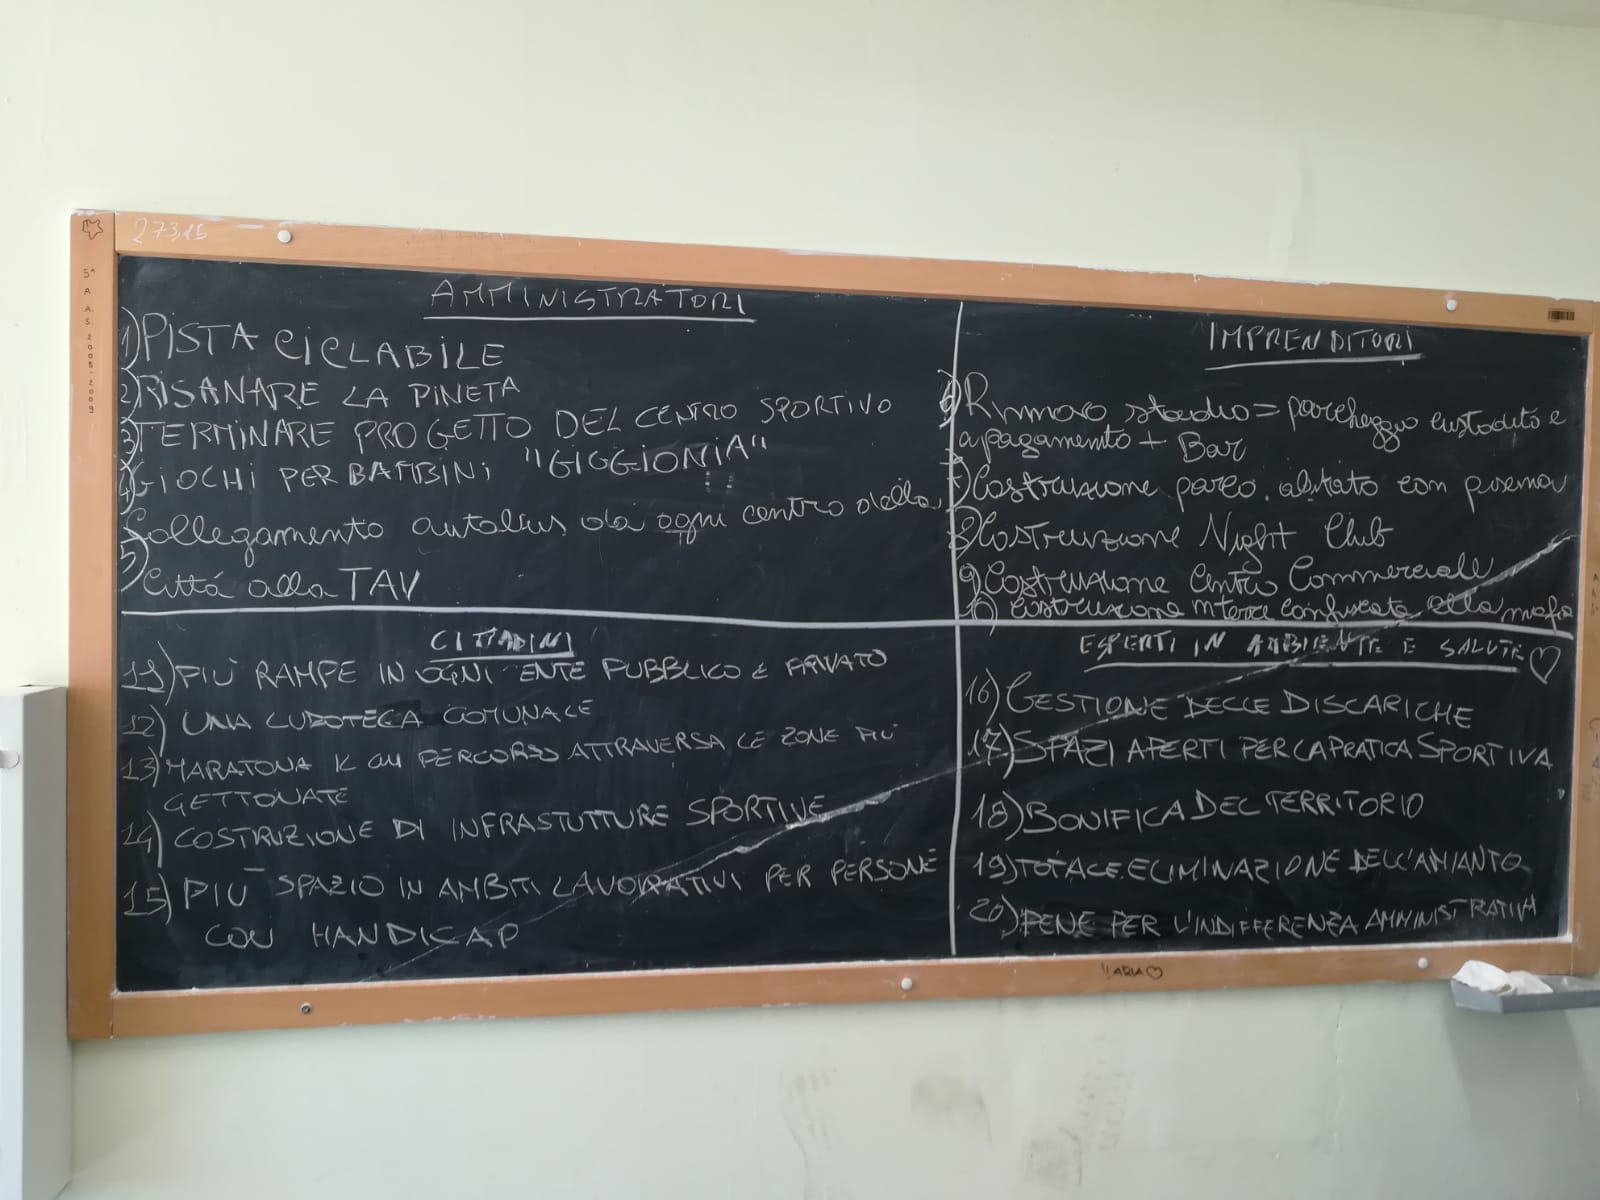 273,15
5ª A A.S. 2008-2009
AMMINISTRATORI
1) PISTA CICLABILE
2) RISANARE LA PINETA
3) TERMINARE PROGETTO DEL CENTRO SPORTIVO
4) GIOCHI PER BAMBINI "GIGGIONIA"
5) Collegamento autobus da ogni centro della
Città alla TAV
IMPRENDITORI
6) Rinnovo stadio = parcheggio custodito e
a pagamento + Bar
7) Costruzione parco. abitato con
8) Costruzione Night Club
9) Costruzione Centro Commerciale
10) Costruzione in terre confiscate alla mafia
CITTADINI
11) PIÙ RAMPE IN OGNI ENTE PUBBLICO E PRIVATO
12) UNA LUDOTECA COMUNALE
13) MARATONA IL CUI PERCORSO ATTRAVERSA LE ZONE PIÙ
GETTONATE
14) COSTRUZIONE DI INFRASTUTTURE SPORTIVE
15) PIÙ SPAZIO IN AMBITI LAVORATIVI PER PERSONE
CON HANDICAP
ESPERTI IN AMBIENTE E SALUTE ♡
16) GESTIONE DELLE DISCARICHE
17) SPAZI APERTI PER LA PRATICA SPORTIVA
18) BONIFICA DEL TERRITORIO
19) TOTALE ELIMINAZIONE DELL'AMIANTO
20) PENE PER L'INDIFFERENZA AMMINISTRATIVA
ILARIA ♡